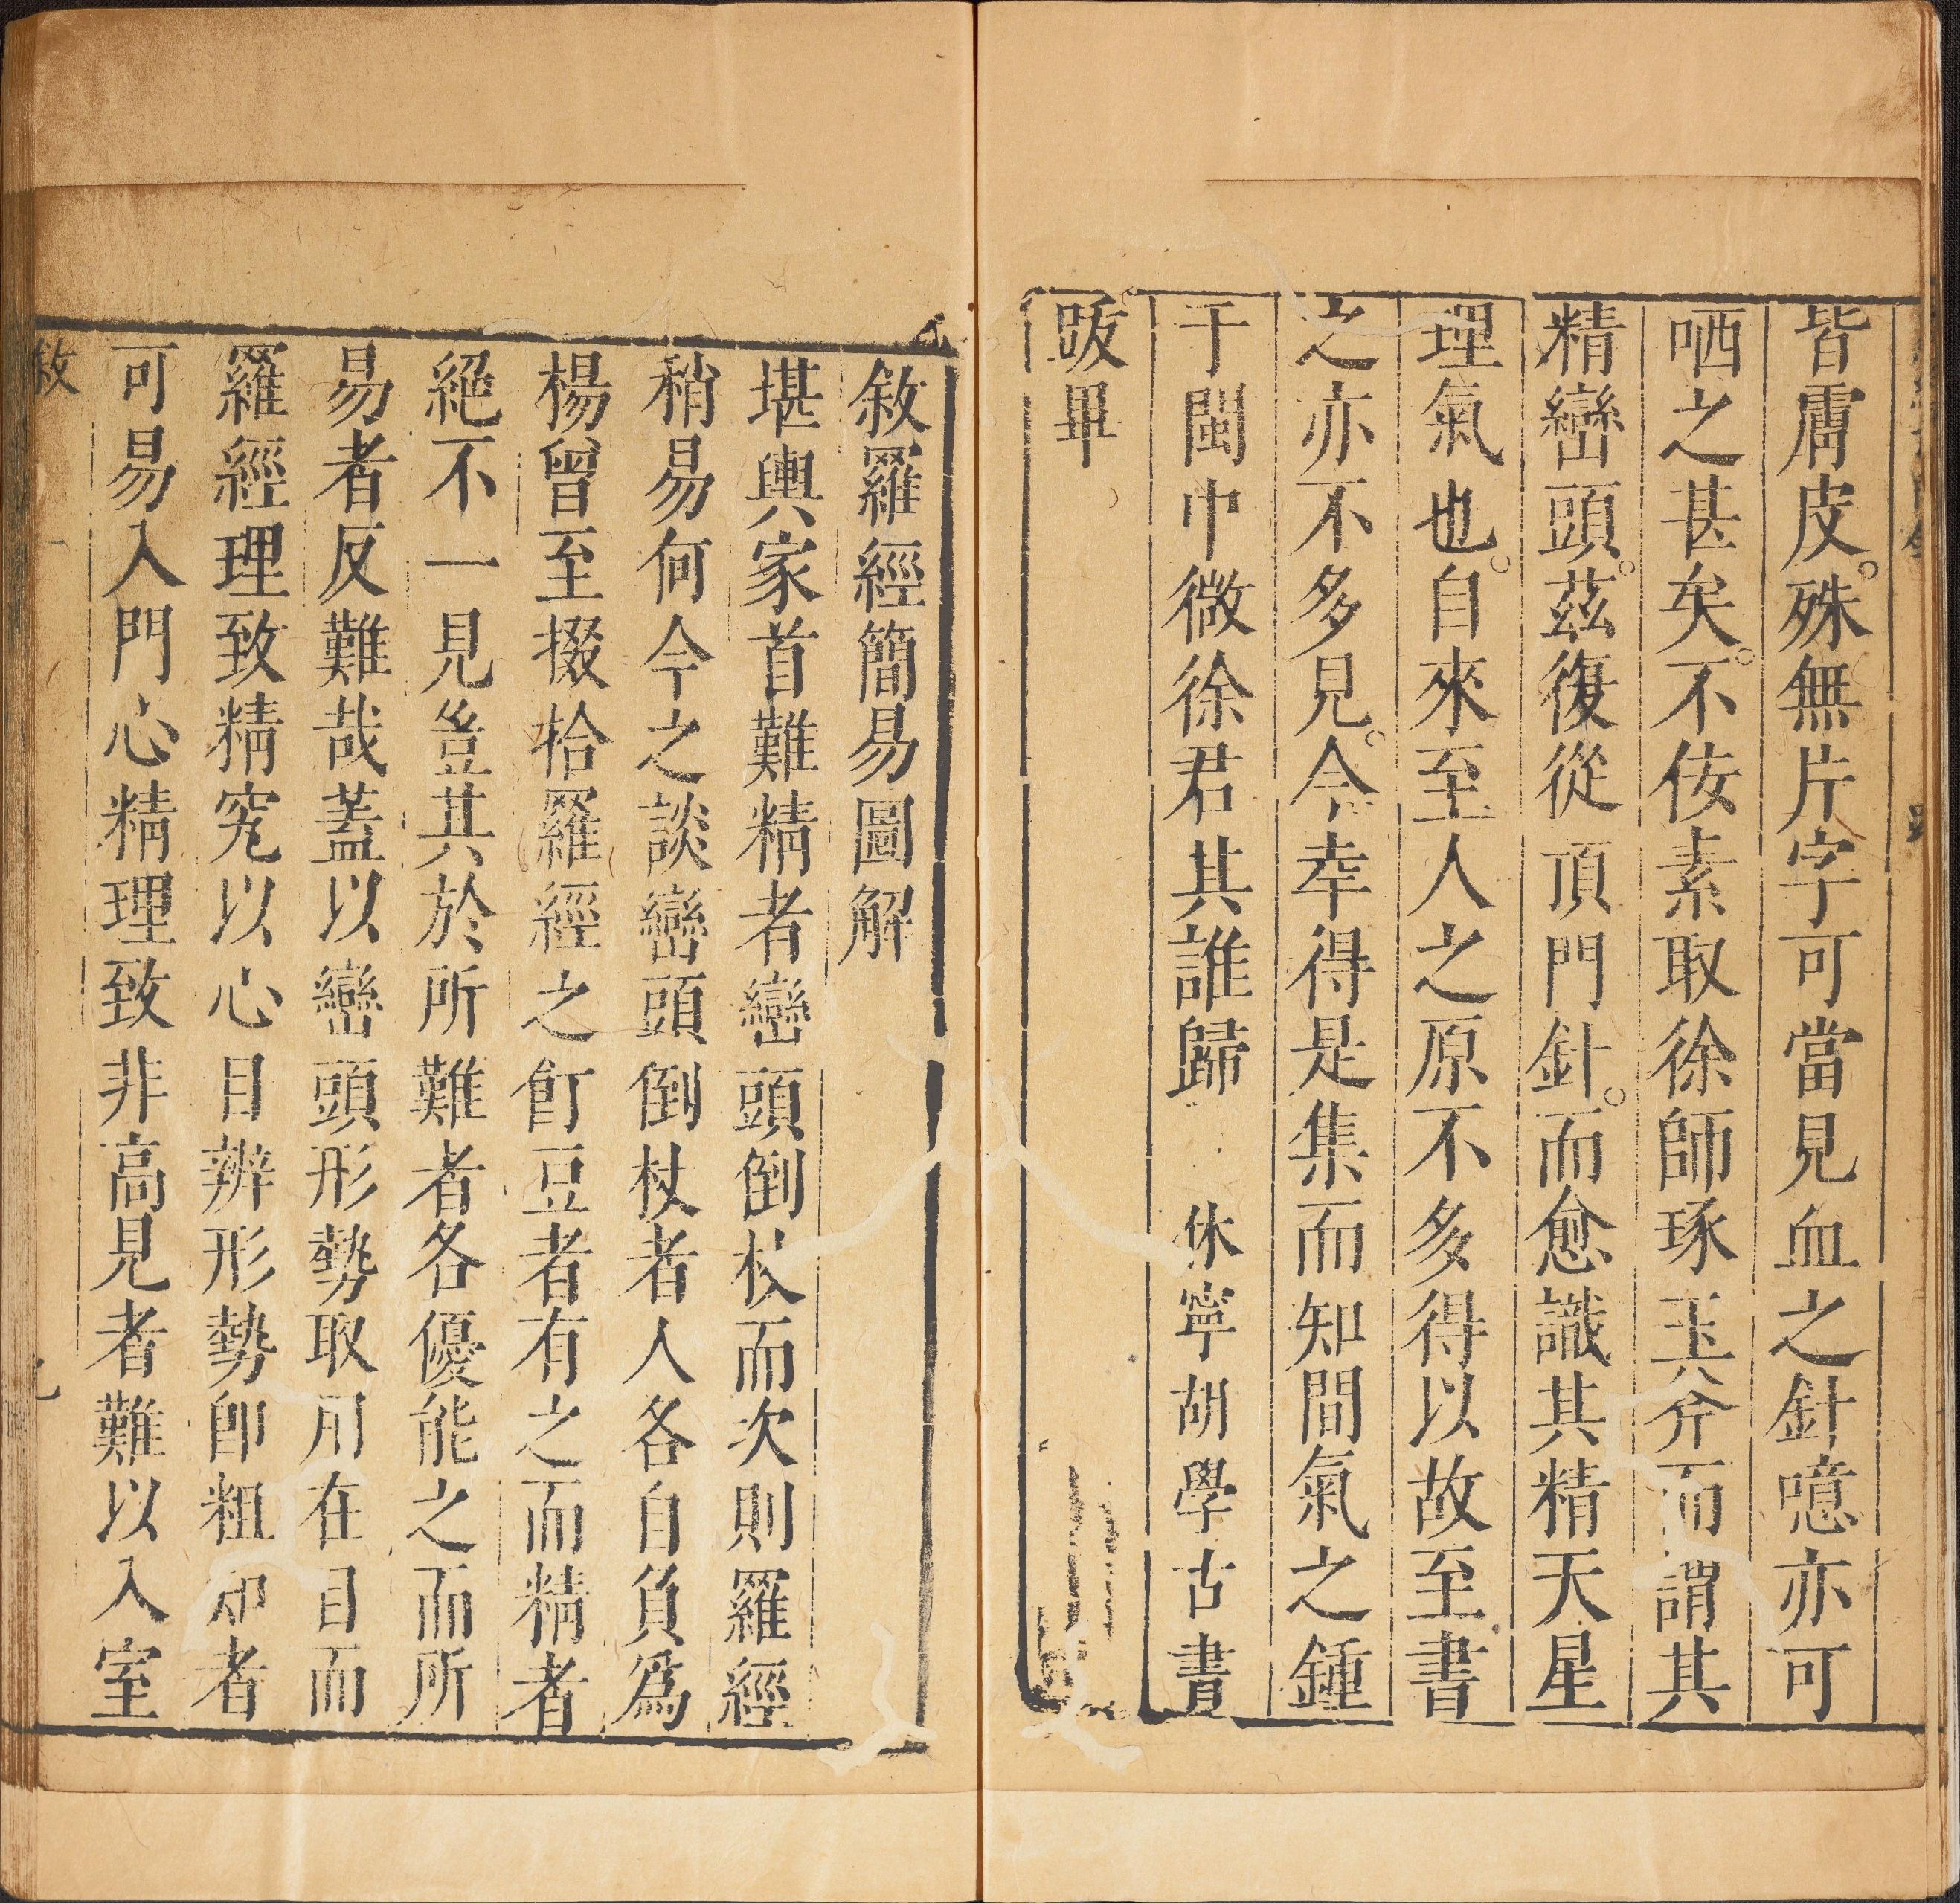 皆膚皮。殊無片字可當見血之針噫亦可
哂之甚矣。不佞素取徐師琢玉斧而謂其
精巒頭。茲復從頂門針。而愈識其精天星
理氣也。自來至人之原不多得以故至書
之亦不多見。今幸得是集而知間氣之鍾
于閩中微徐君其誰歸　休寧胡學古書
跋畢
敘羅經簡易圖解
堪輿家首難精者巒頭倒杖而次則羅經
稍易何今之談巒頭倒杖者人各自負爲
楊曾至掇拾羅經之飣豆者有之而精者
絕不一見豈其於所難者各優能之而所
易者反難哉蓋以巒頭形勢取用在目而
羅經理致精究以心目辨形勢卽粗知者
可易入門心精理致非高見者難以入室
敘